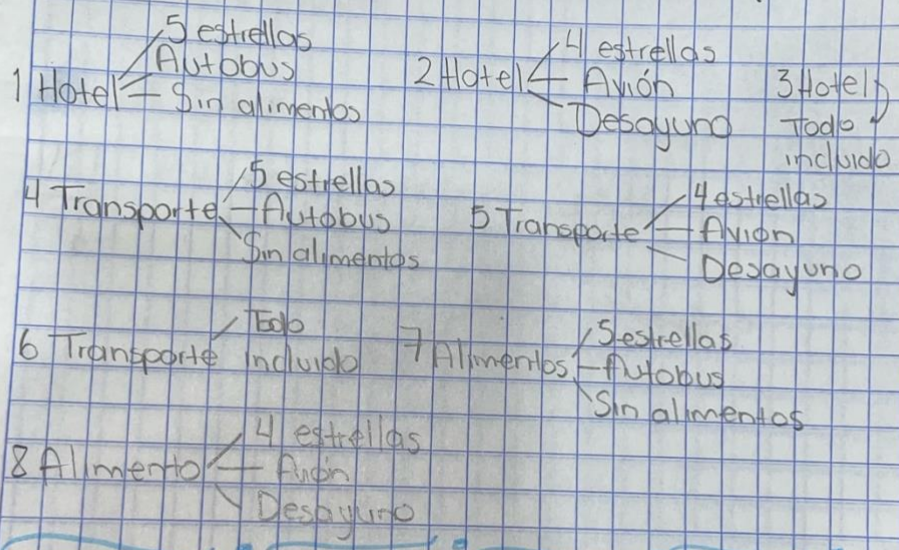 1 Hotel
5 estrellas
Autobus
Sin alimentos
2 Hotel
4 estrellas
Avión
Desayuno
3 Hotel
Todo
incluido
4 Transporte
5 estrellas
Autobus
Sin alimentos
5 Transporte
4 estrellas
Avión
Desayuno
6 Transporte
Todo
incluido
7 Alimentos
5 estrellas
Autobus
Sin alimentos
8 Alimento
4 estrellas
Avión
Desayuno